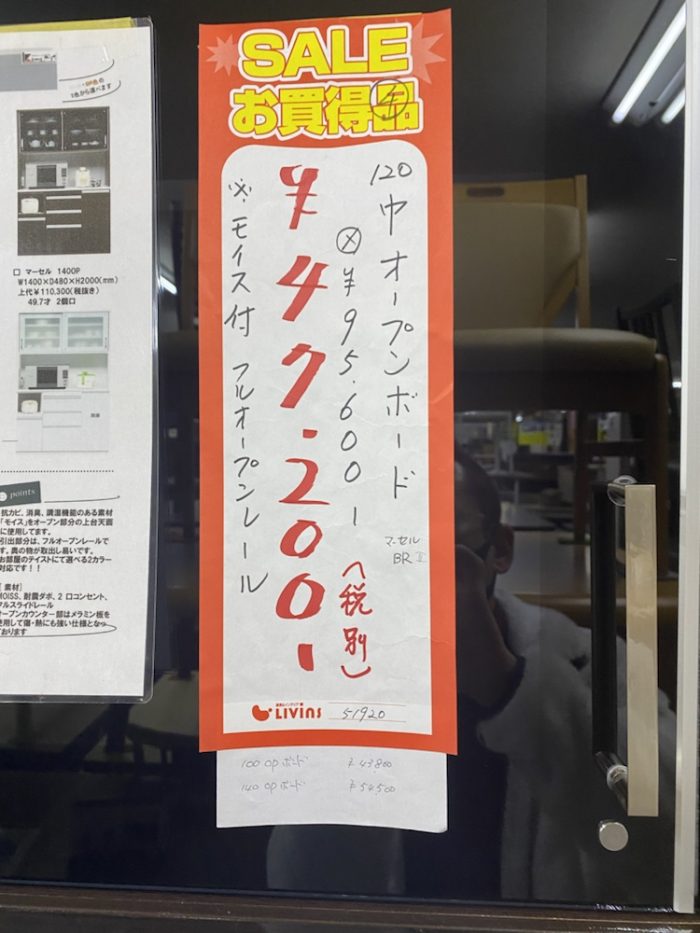 3色から選べます
□ マーセル 1400P
W1400×D480×H2000(mm)
上代¥110,300(税抜き)
49.7才 2個口
points
抗カビ、消臭、調湿機能のある素材
「モイス」をオープン部分の上台天面
に使用してます。
引出部分は、フルオープンレールで
す。奥の物が取出し易いです。
お部屋のテイストにて選べる2カラー
対応です!!
[素材]
MOISS、耐震ダボ、2口コンセント、
フルスライドレール
オープンカウンター部はメラミン板を
使用して傷・熱にも強い仕様となっ
ております
SALE
お買得品
120巾オープンボード
マーセル
BR
メ ¥95.600-
¥47.200-
(税別)
※モイス付 フルオープンレール
LIVINS
51920
100 OPボード ¥43800
140 OPボード ¥54,500